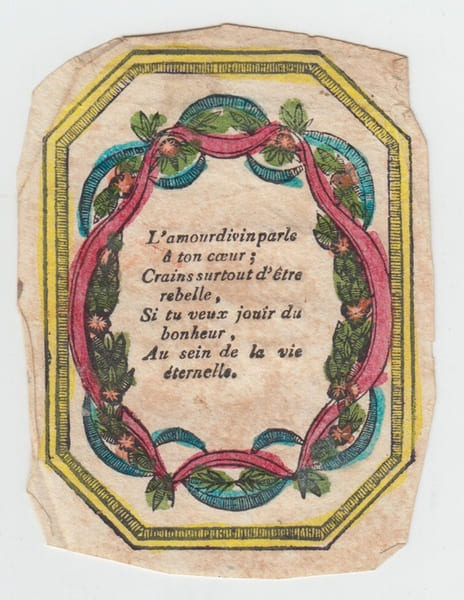 L'amour divin parle
à ton cœur ;
Crains surtout d'être
rebelle,
Si tu veux jouir du
bonheur,
Au sein de la vie
éternelle.